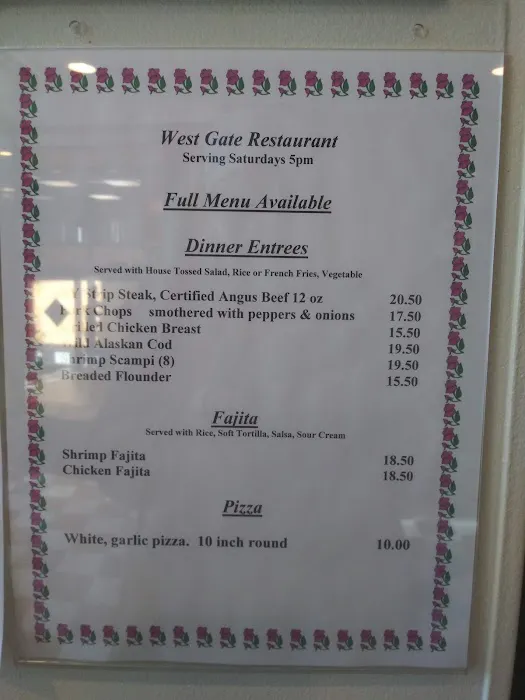 West Gate Restaurant
Serving Saturdays 5pm
Full Menu Available
Dinner Entrees
Served with House Tossed Salad, Rice or French Fries, Vegetable
Strip Steak, Certified Angus Beef 12 oz 20.50
Chops smothered with peppers & onions 17.50
Chicken Breast 15.50
Wild Alaskan Cod 19.50
Shrimp Scampi (8) 19.50
Breaded Flounder 15.50
Fajita
Served with Rice, Soft Tortilla, Salsa, Sour Cream
Shrimp Fajita 18.50
Chicken Fajita 18.50
Pizza
White, garlic pizza. 10 inch round 10.00